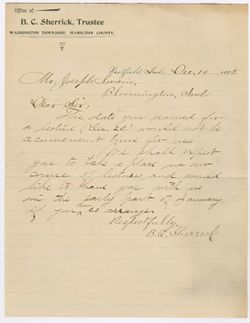 Office of
B. C. Sherrick, Trustee
WASHINGTON TOWNSHIP, HAMILTON COUNTY.
Westfield, Ind., Dec. 10 189
Mr. Joseph Swain,
Bloomington, Ind
Dear Sir;
The date you named for
a lecture (Dec. 20) would not be
a convenient time for us
We shall expect
you to take a place in our
series of lectures and would
like to have you with us
in the early part of January
if you can so arrange
Respectfully
B. C. Sherrick